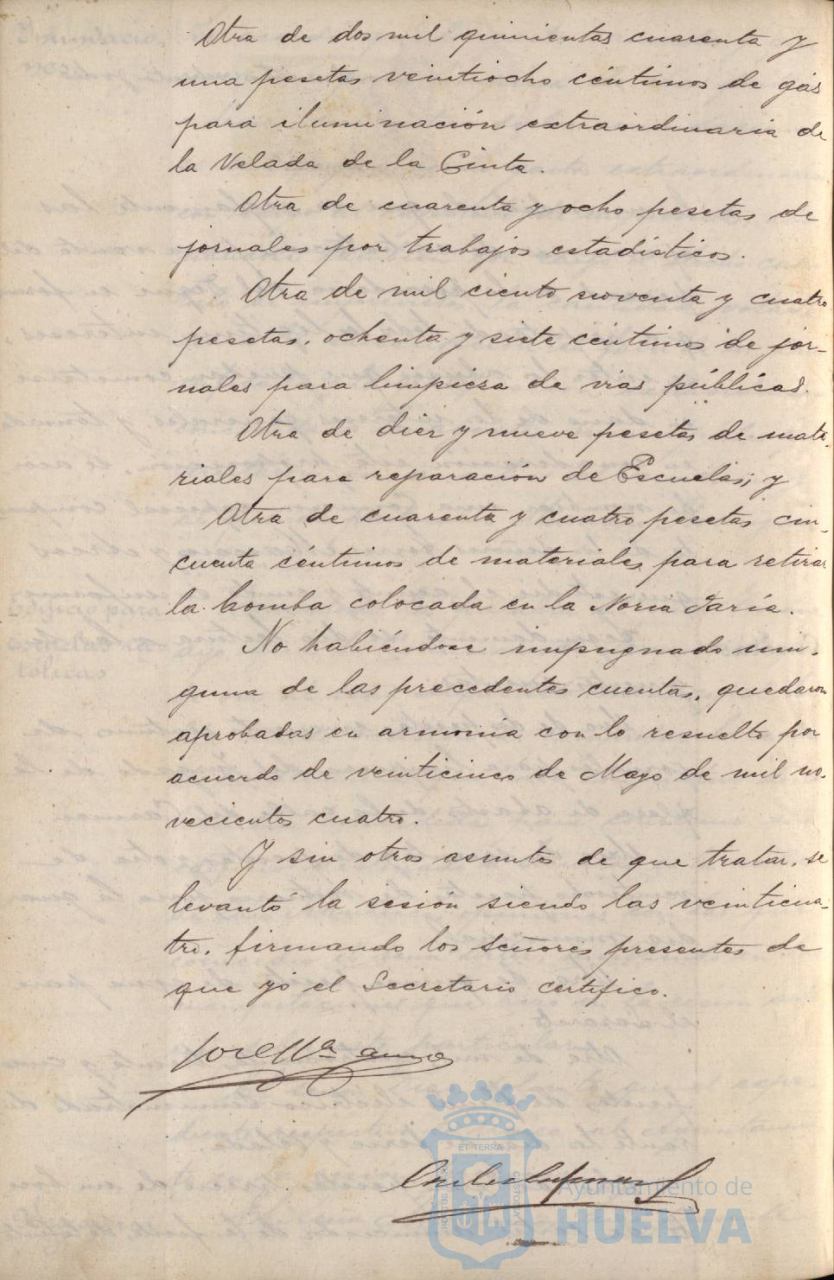 Otra de dos mil quinientas cuarenta y
una pesetas veintiocho céntimos de gás
para iluminación extraordinaria de
la Velada de la Cinta.
Otra de cuarenta y ocho pesetas de
jornales por trabajos estadísticos.
Otra de mil ciento noventa y cuatro
pesetas, ochenta y siete céntimos de jor-
nales para limpieza de vias públicas.
Otra de diez y nueve pesetas de mate-
riales para reparación de Escuelas; y
Otra de cuarenta y cuatro pesetas cin-
cuenta céntimos de materiales para retirar
la bomba colocada en la Noria
No habiéndose impugnado nin-
guna de las precedentes cuentas, quedaron
aprobadas en armonía con lo resuelto por
acuerdo de veinticinco de Mayo de mil no-
vecientos cuatro.
Y sin otros asuntos de que tratar, se
levantó la sesión siendo las veinticua-
tro, firmando los señores presentes de
que yó el Secretario certifico.
José Mª
ET TERRA
Ayuntamiento de
HUELVA